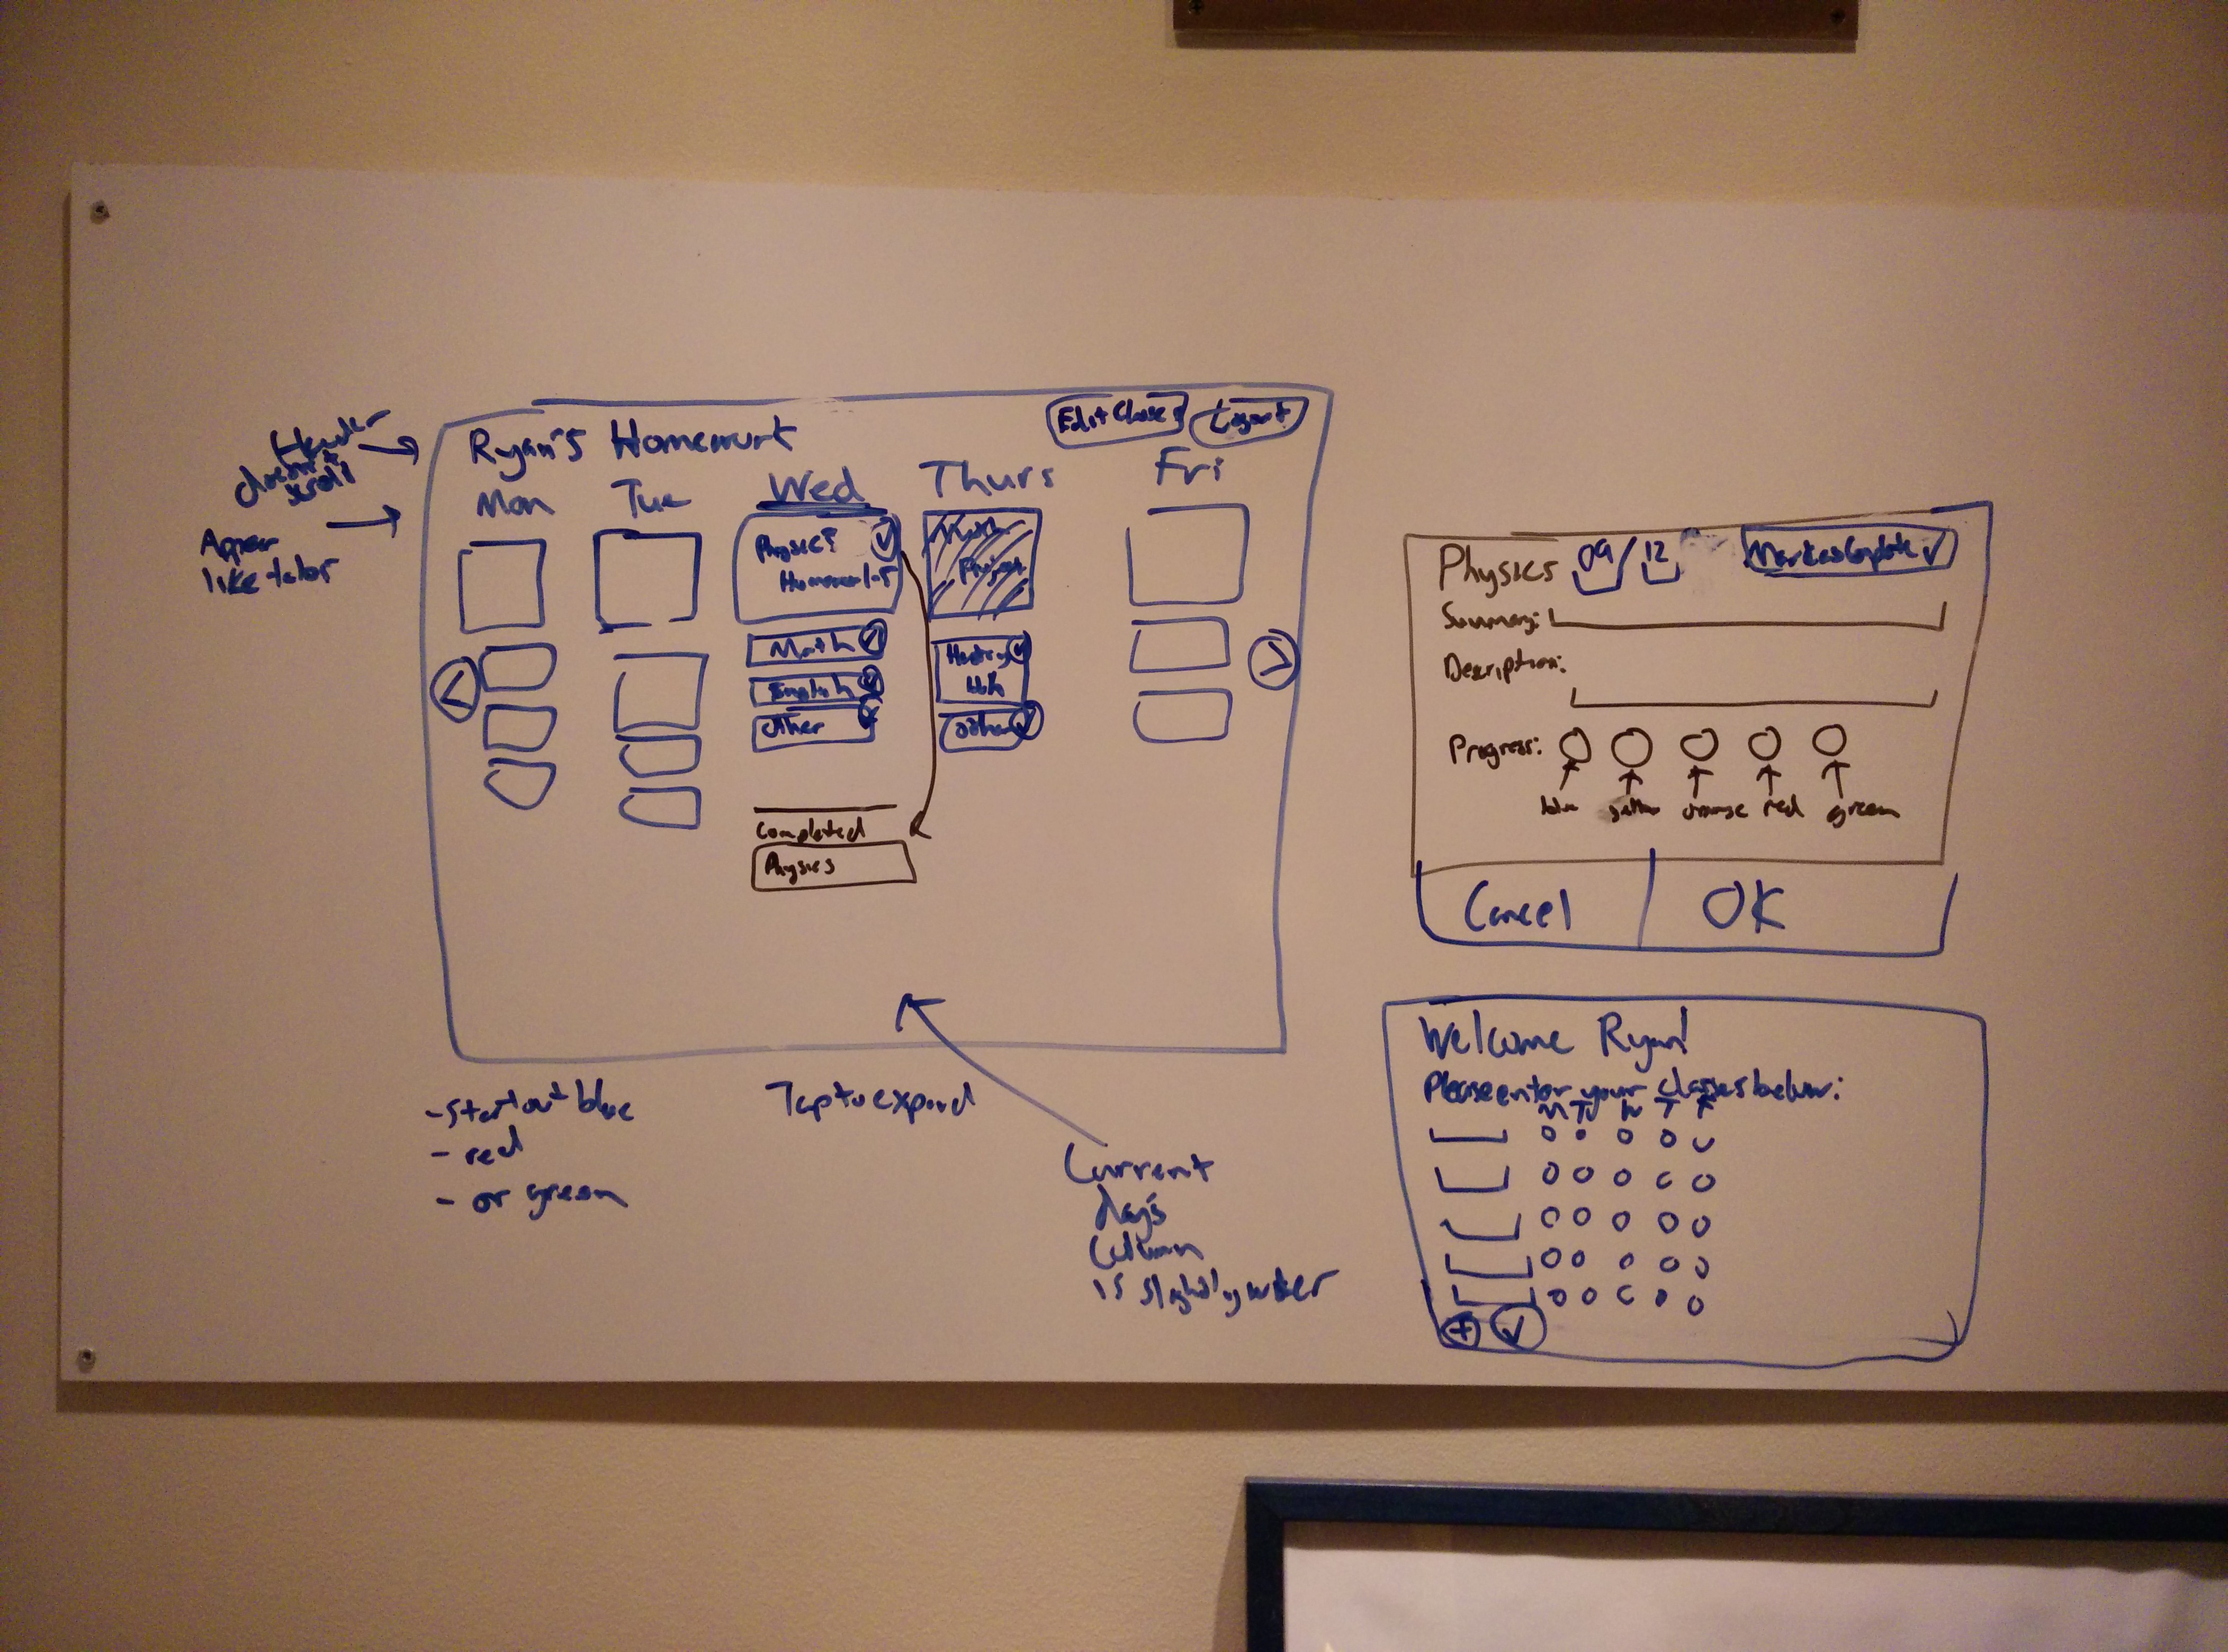 Header
doesn't
scroll
Appear
like tabs
Ryan's Homework
Edit Classes
Logout
Mon
Tue
Wed
Thurs
Fri
Physics
Homework
Math
English
Other
Completed
Physics
Math
Project
History
Other
<
>
- Start out blue
- red
- or green
Tap to expand
Current
day's
Column
is slightly wider
Physics 09/12
Mark as Complete ✓
Summary:
Description:
Progress:
blue yellow orange red green
Cancel
OK
Welcome Ryan!
Please enter your classes below:
M Tu W T F
+ ✓